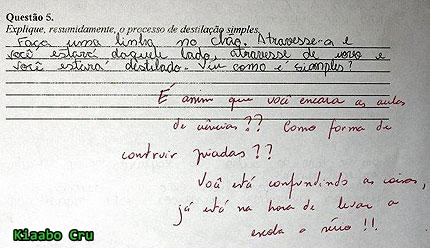 Questão 5.
Explique, resumidamente, o processo de destilação simples.
Faça uma linha no chão. Atravesse-a e
você estará daquele lado, atravesse de novo e
você estará destilado. Viu como é simples?
É assim que você encara as aulas
de ciências?? Como forma de
contruir piadas??
Você está confundindo as coisas,
já está na hora de levar a
escola a sério!!
Klaabo Cru